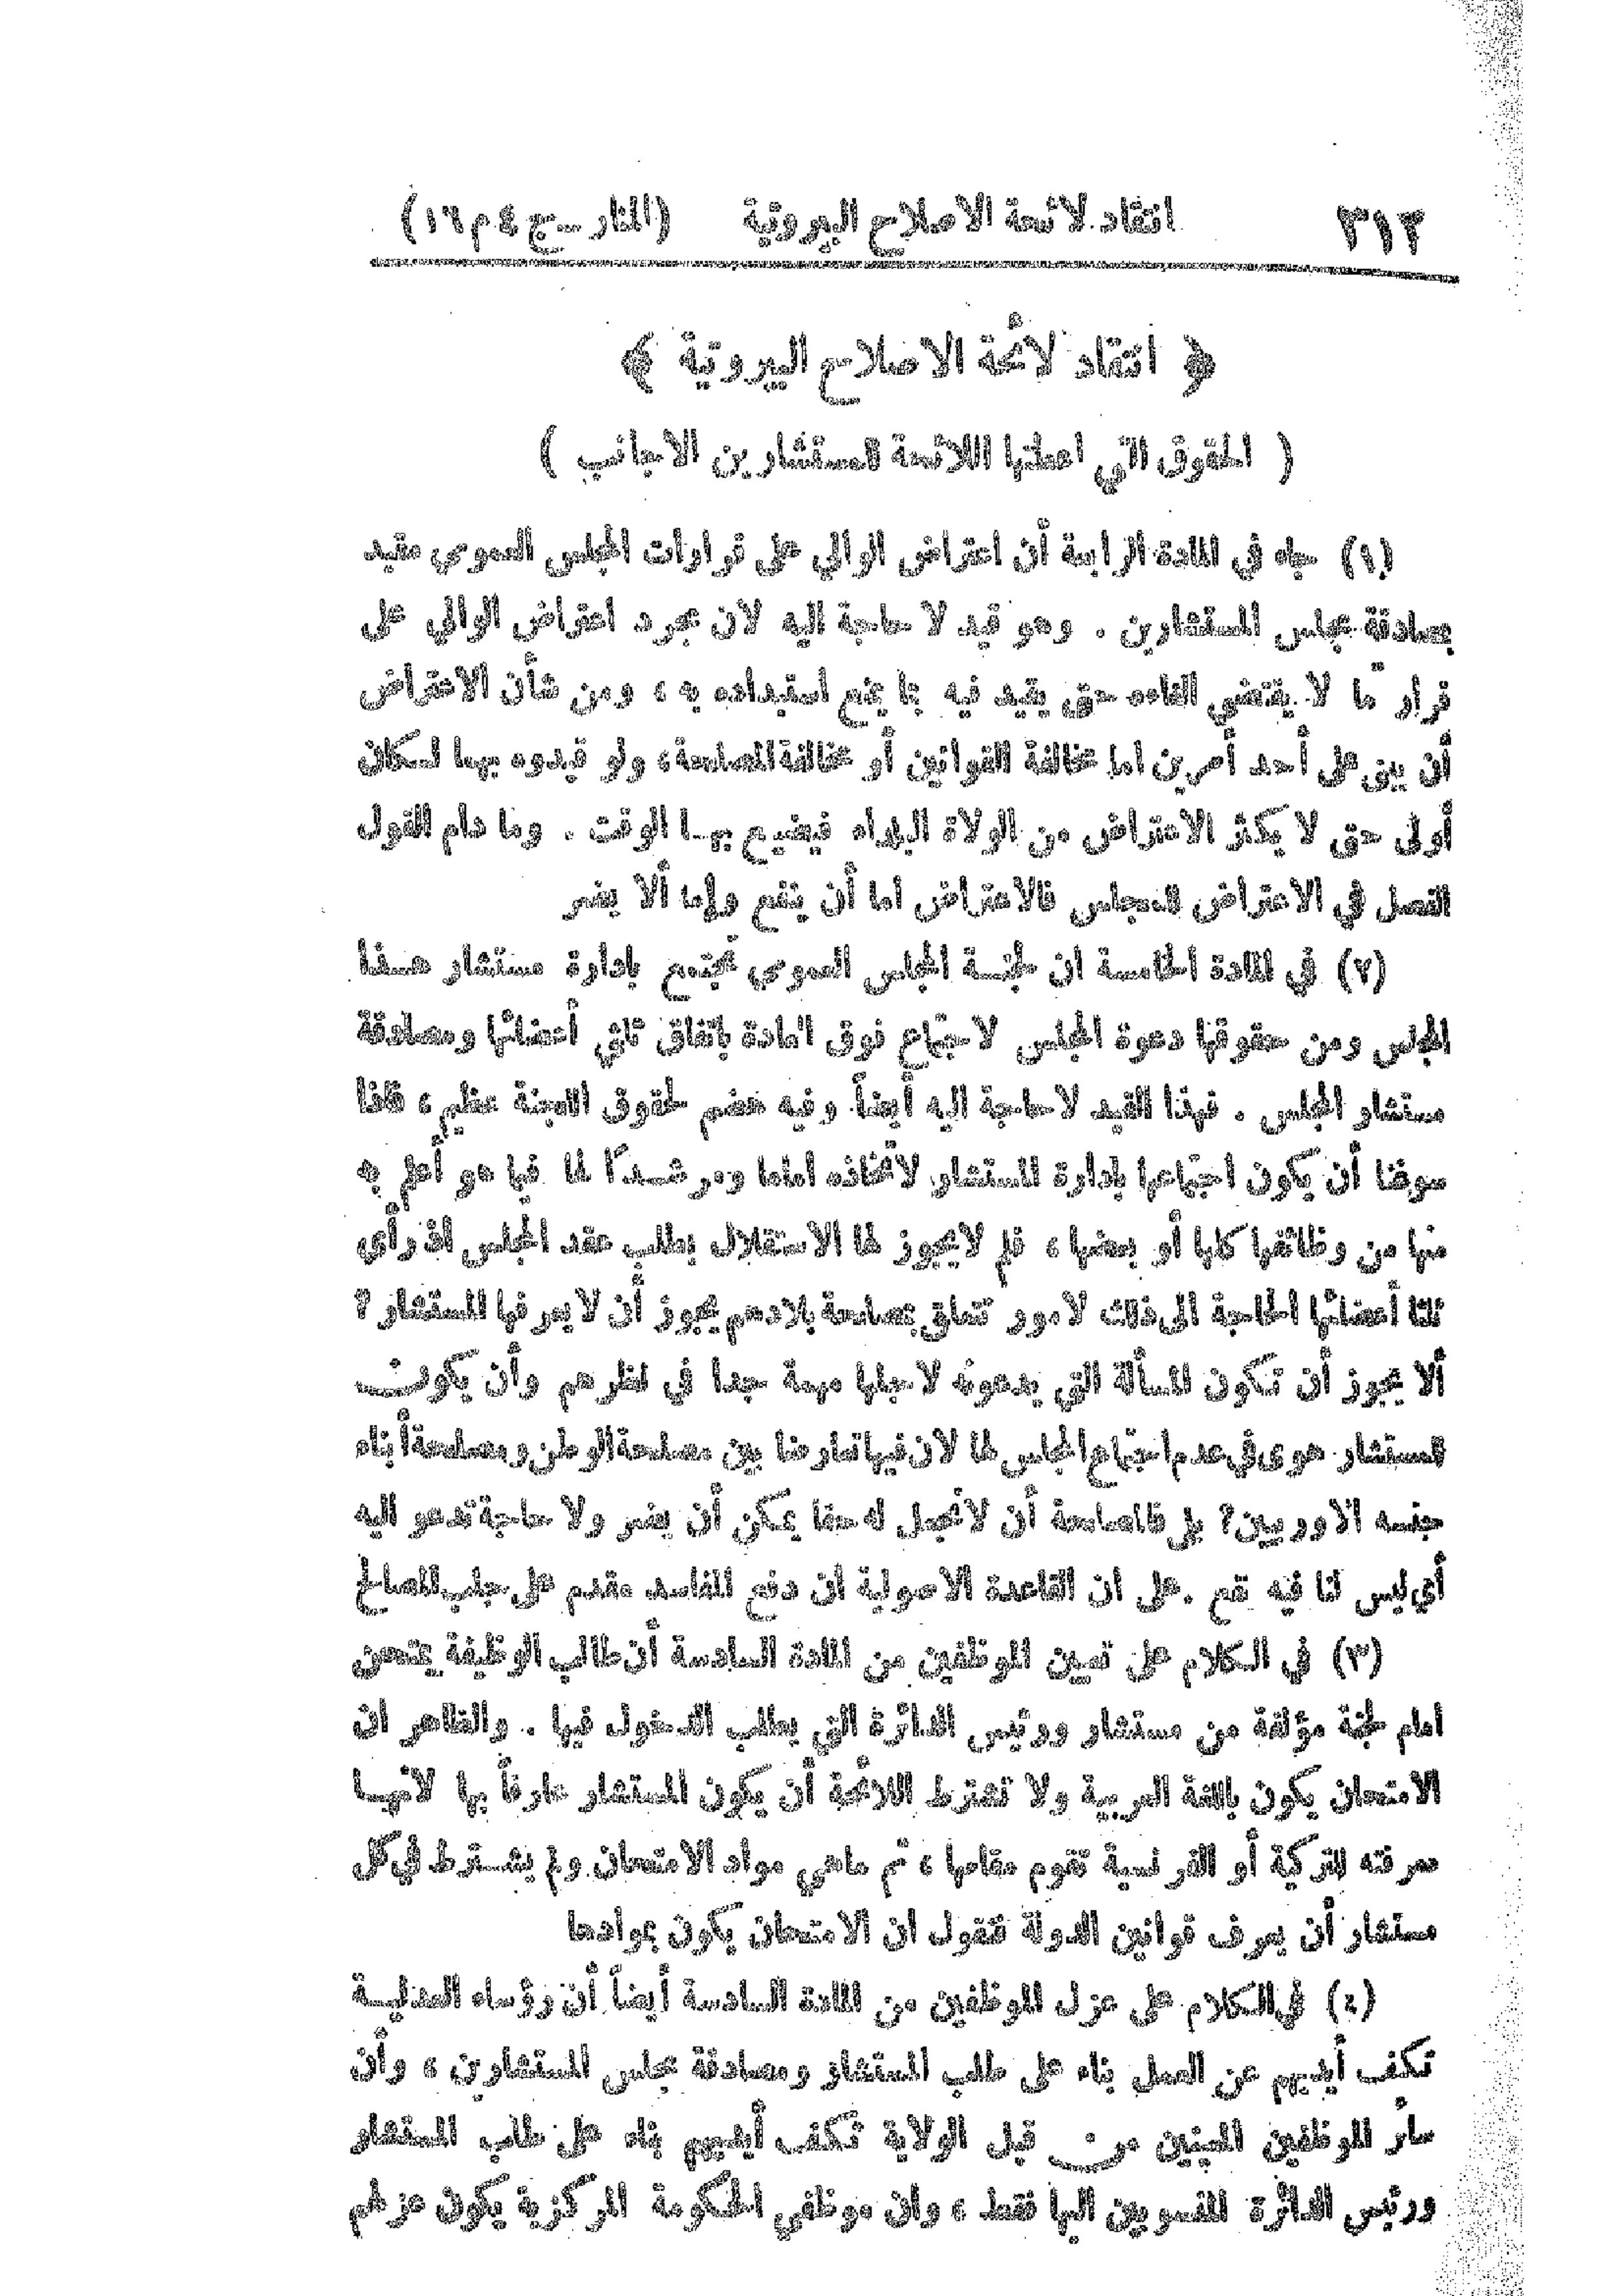 ٣١٢ انتقاد لائحة الاصلاح البيروتية (المنار – ج ٤ م ١٦)
﴿ انتقاد لائحة الاصلاح البيروتية ﴾
( الحقوق التي اعطتها اللائحة للمستشارين الاجانب )
(١) جاء في المادة الرابعة أن اعتراض الوالي على قرارات المجلس العمومي مقيد
بمصادقة مجلس المستشارين . وهو قيد لا حاجة اليه لان مجرد اعتراض الوالي على
قرار ما لا يقتضي الغاءه حتى يقيد فيه بما يمنع استبداده به ، ومن شأن الاعتراض
أن يبنى على أحد أمرين اما مخالفة القوانين أو مخالفة المصلحة ، ولو قيدوه بهما لكان
أولى حتى لا يكثر الاعتراض من الولاة البلداء فيضيع بهـا الوقت . وما دام القول
الفصل في الاعتراض للمجلس فالاعتراض اما أن ينفع وإما ألا يضر
(٢) في المادة الخامسة ان لجنـة المجلس العمومي تجتمع بادارة مستشار هـذا
المجلس ومن حقوقها دعوة المجلس لاجتماع فوق العادة باتفاق ثلثي أعضائها ومصادقة
مستشار المجلس . فهذا القيد لا حاجة اليه أيضاً وفيه هضم لحقوق اللجنة عظيم ، فاذا
سوغنا أن يكون اجتماعها بادارة المستشار لاتخاذه اماما ومرشـداً لها فيما هو أعلم به
منها من وظائفها كلها أو بعضها ، فلم لا يجوز لها الاستقلال بطلب عقد المجلس اذ رأى
ثلثا أعضائها الحاجة الى ذلك لامور تتعلق بمصلحة بلادهم يجوز أن لا يعرفها المستشار ؟
ألا يجوز أن تكون المسألة التي يدعونه لاجلها مهمة جدا في نظرهم وأن يكون
للمستشار هوى في عدم اجتماع المجلس لها لان فيها تعارضا بين مصلحة الوطن ومصلحة أبناء
جنسه الاوربيين ؟ بلى فالمصلحة أن لا نجعل له حقا يمكن أن يضر ولا حاجة تدعو اليه
أي ليس لنا فيه نفع . على ان القاعدة الاصولية ان دفع المفاسد مقدم على جلب المصالح
(٣) في الكلام على تعيين الموظفين من المادة السادسة أن طالب الوظيفة يمتحن
امام لجنة مؤلفة من مستشار ورئيس الدائرة التي يطلب الدخول فيها . والظاهر ان
الامتحان يكون باللغة العربية ولا تشترط اللائحة أن يكون المستشار عارفاً بها لانهـا
معرفته للتركية أو الفرنسية تقوم مقامها ، ثم ماهي مواد الامتحان ولم يشـترط في كل
مستشار أن يعرف قوانين الدولة فنقول ان الامتحان يكون بموادها
(٤) في الكلام على عزل الموظفين من المادة السادسة أيضاً أن رؤساء العدليـة
تكف أيديهم عن العمل بناء على طلب المستشار ومصادقة مجلس المستشارين ، وأن
سائر الموظفين المعينين من قبل الولاية تكف أيديهم بناء على طلب المستشار
ورئيس الدائرة المنسوبين اليها فقط ، وان موظفي الحكومة المركزية يكون عزلهم